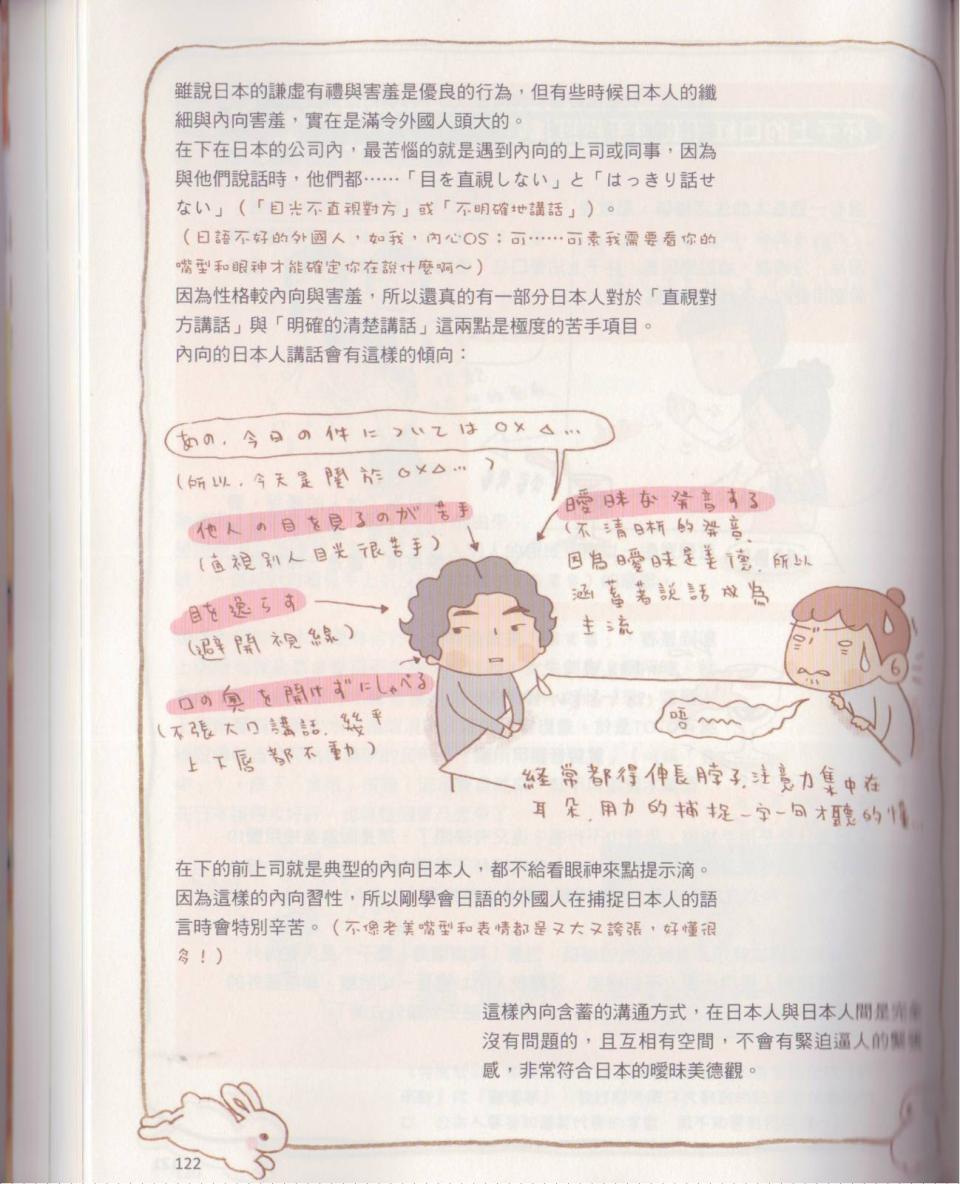 雖說日本的謙虛有禮與害羞是優良的行為，但有些時候日本人的纖
細與內向害羞，實在是滿令外國人頭大的。
在下在日本的公司內，最苦惱的就是遇到內向的上司或同事，因為
與他們說話時，他們都……「目を直視しない」と「はっきり話せ
ない」（「目光不直視對方」或「不明確地講話」）。
（日語不好的外國人，如我，內心OS：可……可素我需要看你的
嘴型和眼神才能確定你在說什麼啊～）
因為性格較內向與害羞，所以還真的有一部分日本人對於「直視對
方講話」與「明確的清楚講話」這兩點是極度的苦手項目。
內向的日本人講話會有這樣的傾向：
あの，今日の件については○×△…
（所以，今天是關於○×△…）
他人の目を見るのが苦手
（直視別人目光很苦手）
目を逸らす
（避開視線）
口の奥を開けずにしゃべる
（不張大口講話，幾乎
上下唇都不動）
曖昧な発音する
（不清晰的發音，
因為曖昧是美德，所以
涵蓄著說話成為
主流
唔～～
経常都得伸長脖子，注意力集中在
耳朵，用力的捕捉一字一句才聽的懂
在下的前上司就是典型的內向日本人，都不給看眼神來點提示滴。
因為這樣的內向習性，所以剛學會日語的外國人在捕捉日本人的語
言時會特別辛苦。（不像老美嘴型和表情都是又大又誇張，好懂很
多！）
這樣內向含蓄的溝通方式，在日本人與日本人間是完全
沒有問題的，且互相有空間，不會有緊迫逼人的
感，非常符合日本的曖昧美德觀。
122